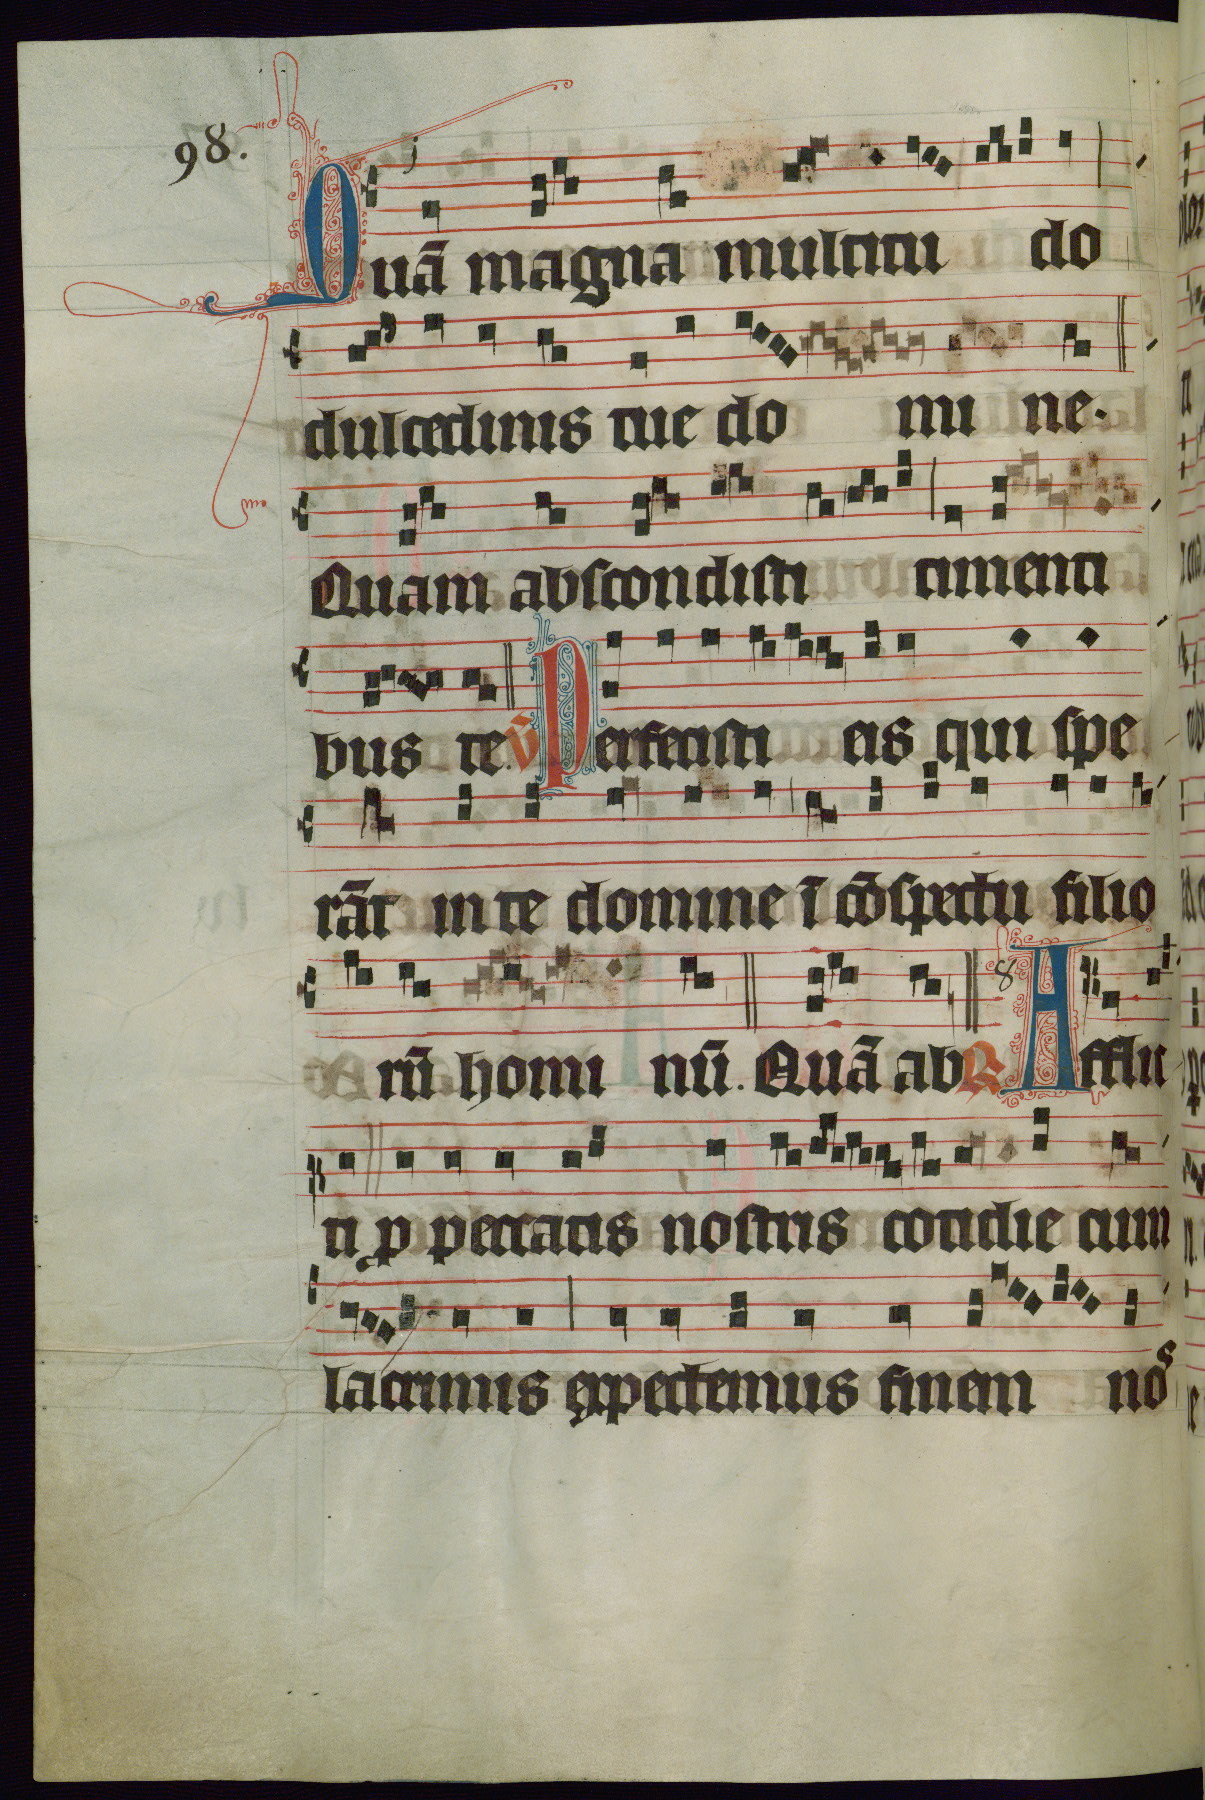 98.
Quā magna multitu do
dulcedinis tue do mi ne.
Quam abscondisti timenti
bus te. V̄ Perfecisti eis qui spe
rāt in te domine ī cōspectu filio
rū homi nū. Quā ab R 8 Afflic
ti ꝓ peccatis nostris cotidie cum
lacrimis expectemus finem nos